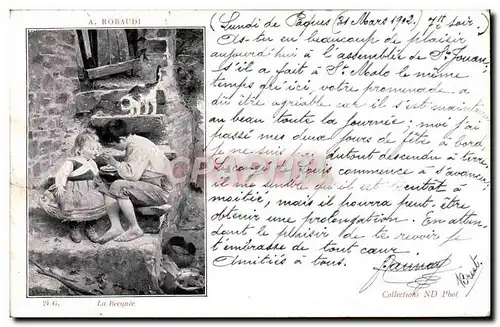 A. ROBAUDI
(Lundi de Pâques (31 Mars 1902.) 7h soir)
As-tu eu beaucoup de plaisir
aujourd'hui à l'assemblée de St Jouan,
s'il a fait à St Malo le même
temps qu'ici, votre promenade a
dû être agréable car il s'est maintenu
au beau toute la journée; moi j'ai
passé mes deux jours de fête à bord
je ne suis pas du tout descendu à terre.
commence à s'avancer
il me semble qu'il est bientôt à
moitié, mais il pourra peut être
obtenir une prolongation. En atten-
dant le plaisir de te revoir je
t'embrasse de tout cœur.
Amitiés à tous.
Brest.
21 G.
La Becquée
Collections ND Phot